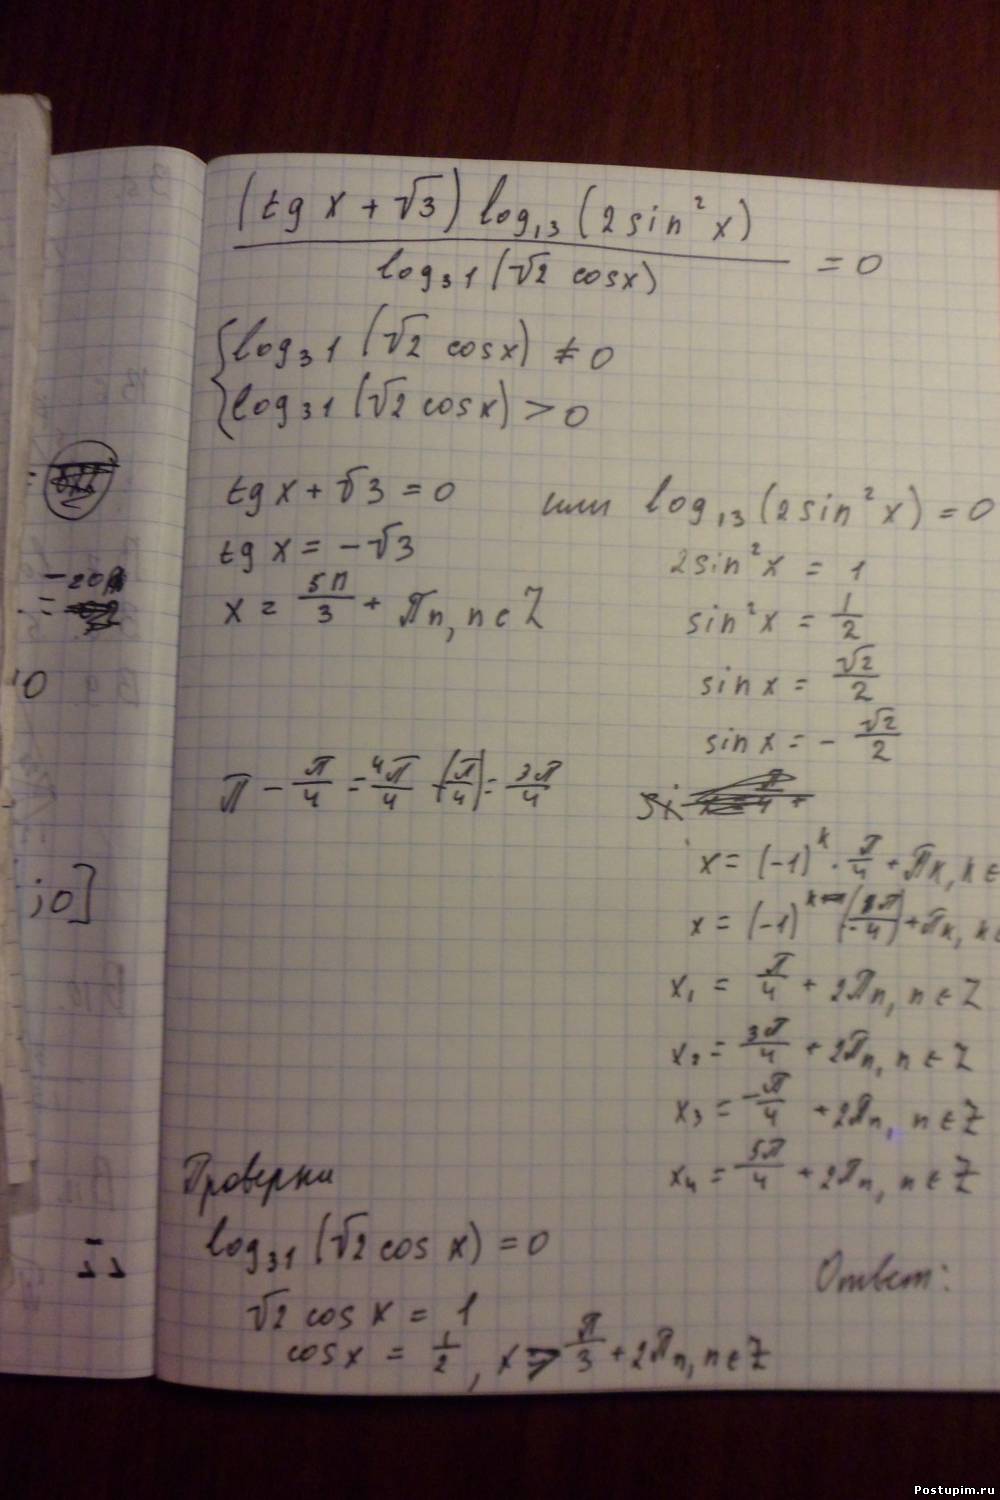 (tg x + √3) log₁₃ (2 sin² x)
/ log₃₁ (√2 cos x) = 0
{ log₃₁ (√2 cos x) ≠ 0
log₃₁ (√2 cos x) > 0
tg x + √3 = 0 или log₁₃ (2 sin² x) = 0
tg x = -√3
x = 5π/3 + πn, n ∈ Z
2 sin² x = 1
sin² x = 1/2
sin x = √2/2
sin x = - √2/2
π - π/4 = 4π/4 - (π/4) = 3π/4
x = (-1)^k · π/4 + πk, k ∈
x = (-1)^k + πk, k ∈
x₁ = π/4 + 2πn, n ∈ Z
x₂ = 3π/4 + 2πn, n ∈ Z
x₃ = -π/4 + 2πn, n ∈ Z
x₄ = 5π/4 + 2πn, n ∈ Z
Проверка
log₃₁ (√2 cos x) = 0
√2 cos x = 1
cos x = 1/2, x = π/3 + 2πn, n ∈ Z
Ответ:
0
;0]
Postupim.ru